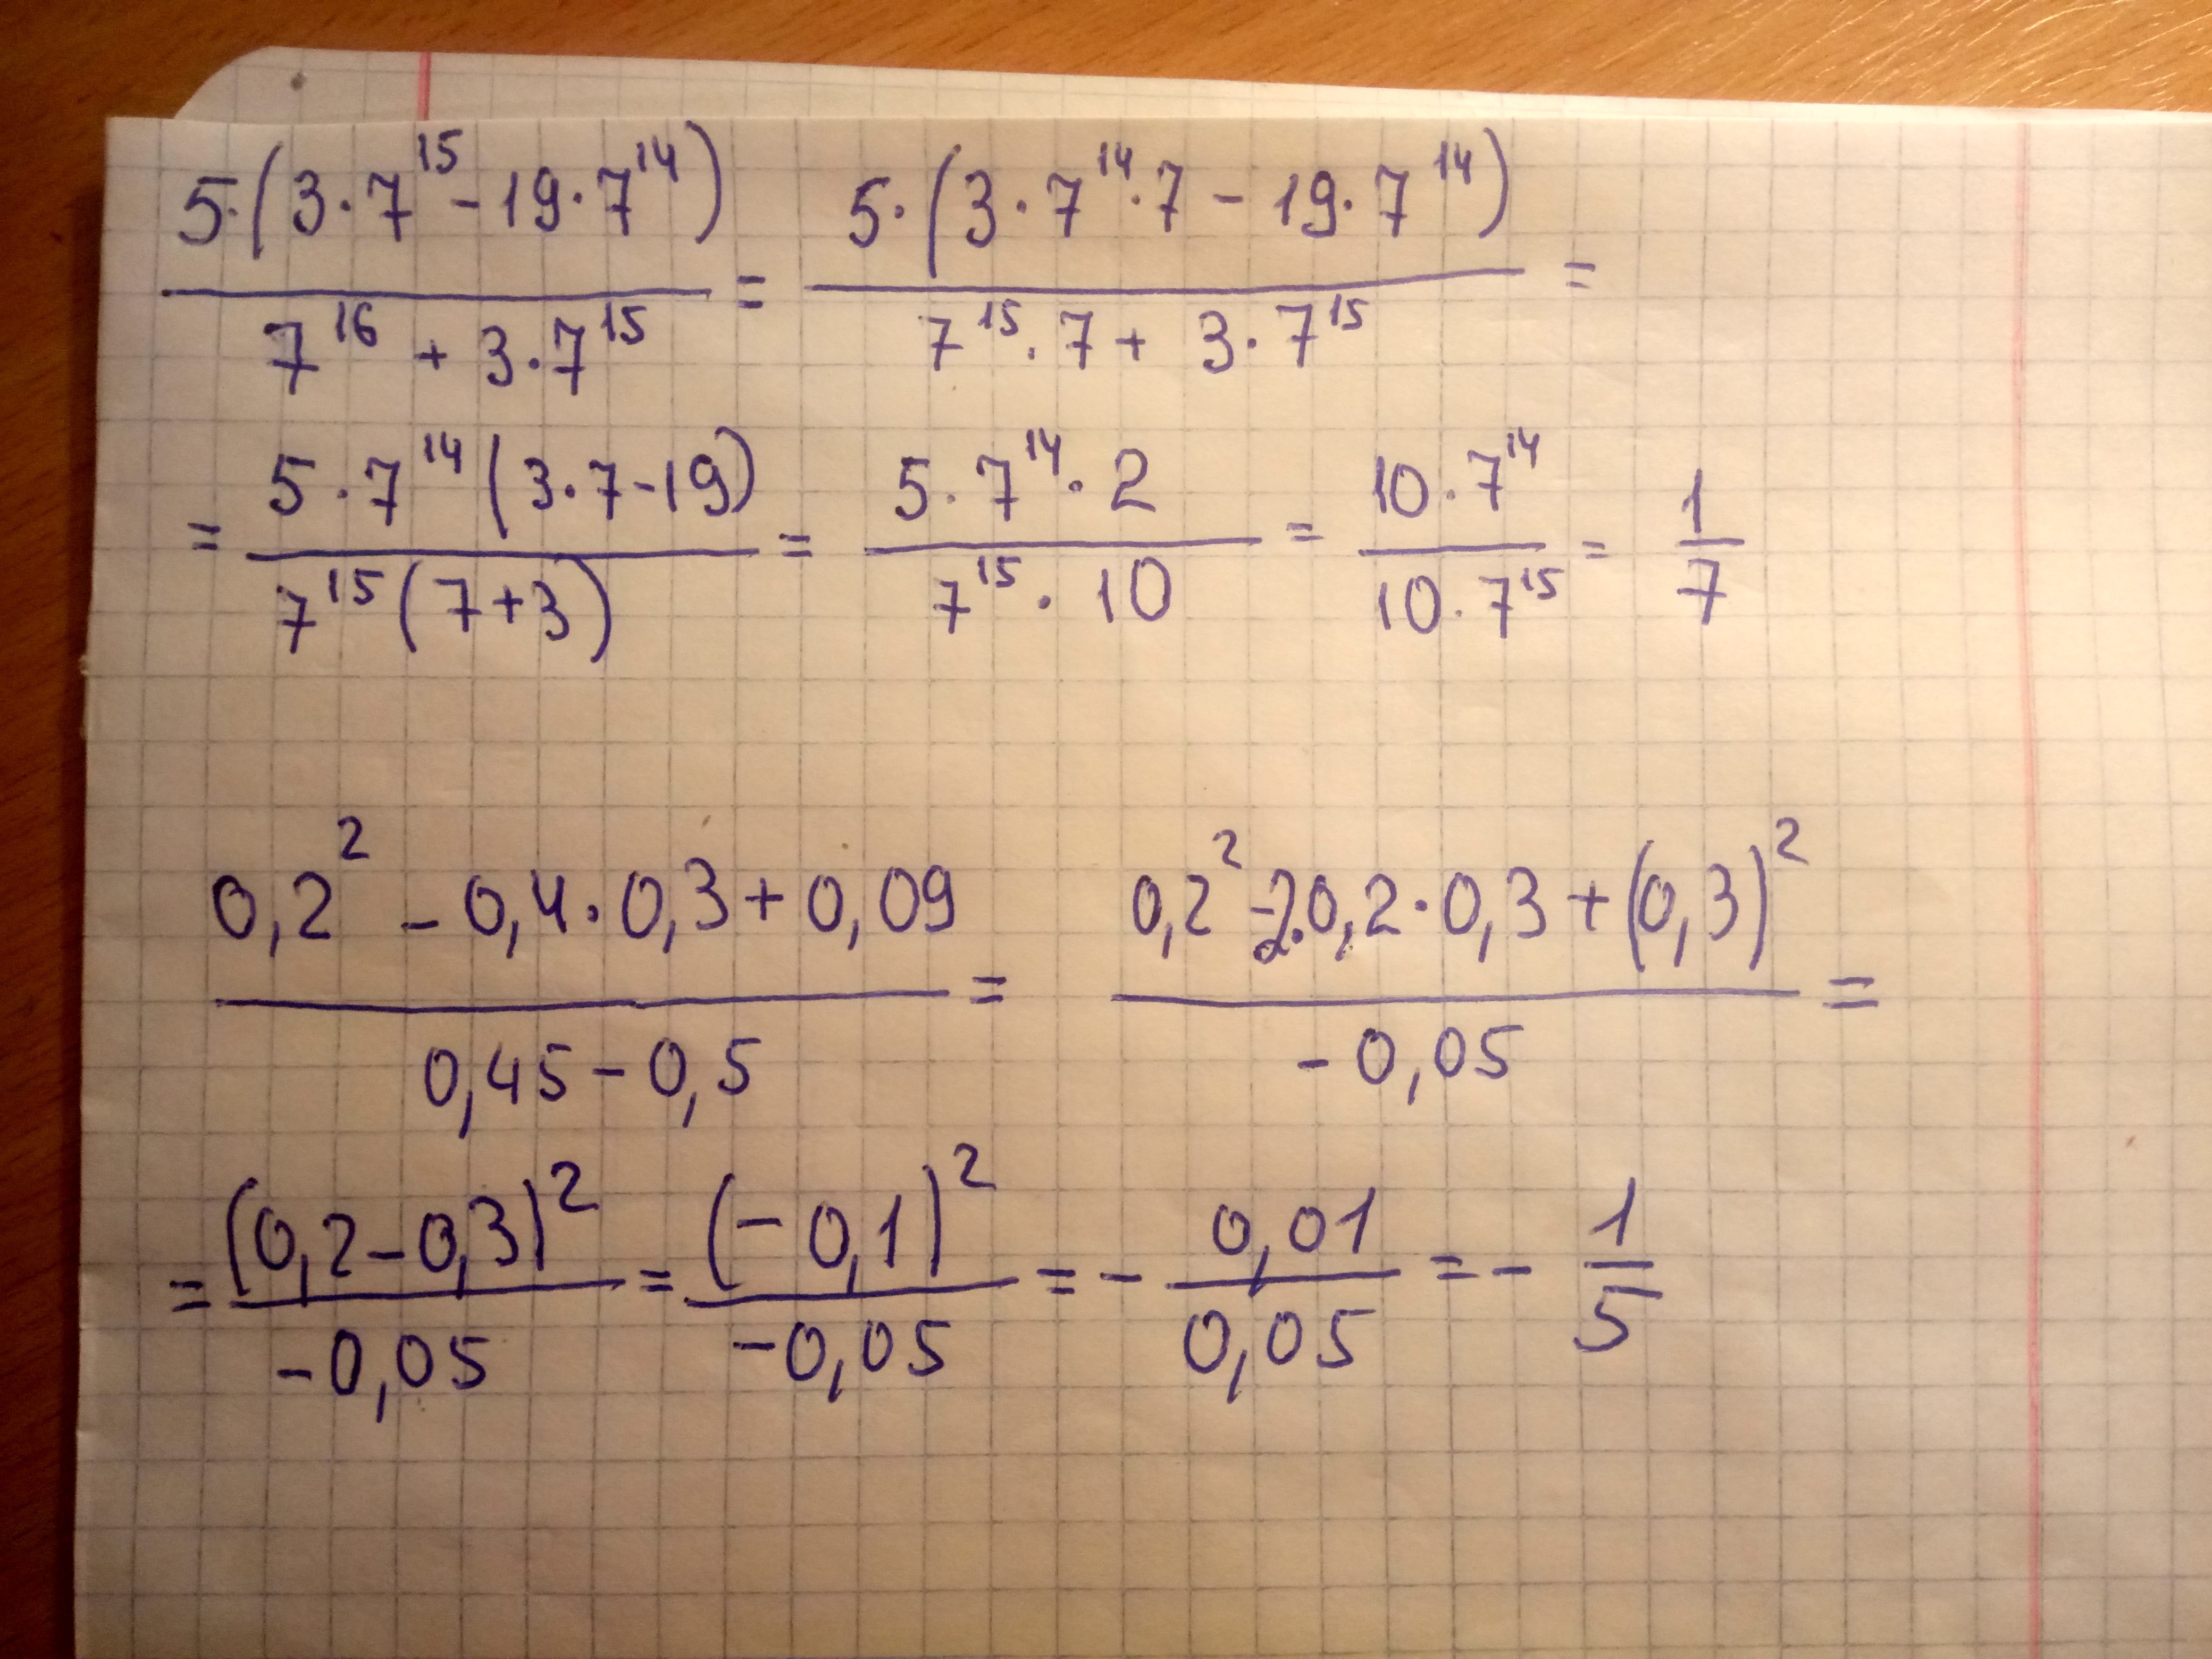 5·(3·7^15 - 19·7^14) / (7^16 + 3·7^15) = 5·(3·7^14·7 - 19·7^14) / (7^15·7 + 3·7^15) =
= 5·7^14(3·7-19) / (7^15(7+3)) = 5·7^14·2 / (7^15·10) = 10·7^14 / (10·7^15) = 1/7
(0,2^2 - 0,4·0,3 + 0,09) / (0,45 - 0,5) = (0,2^2 - 2·0,2·0,3 + (0,3)^2) / (-0,05) =
= (0,2-0,3)^2 / (-0,05) = (-0,1)^2 / (-0,05) = - 0,01/0,05 = - 1/5